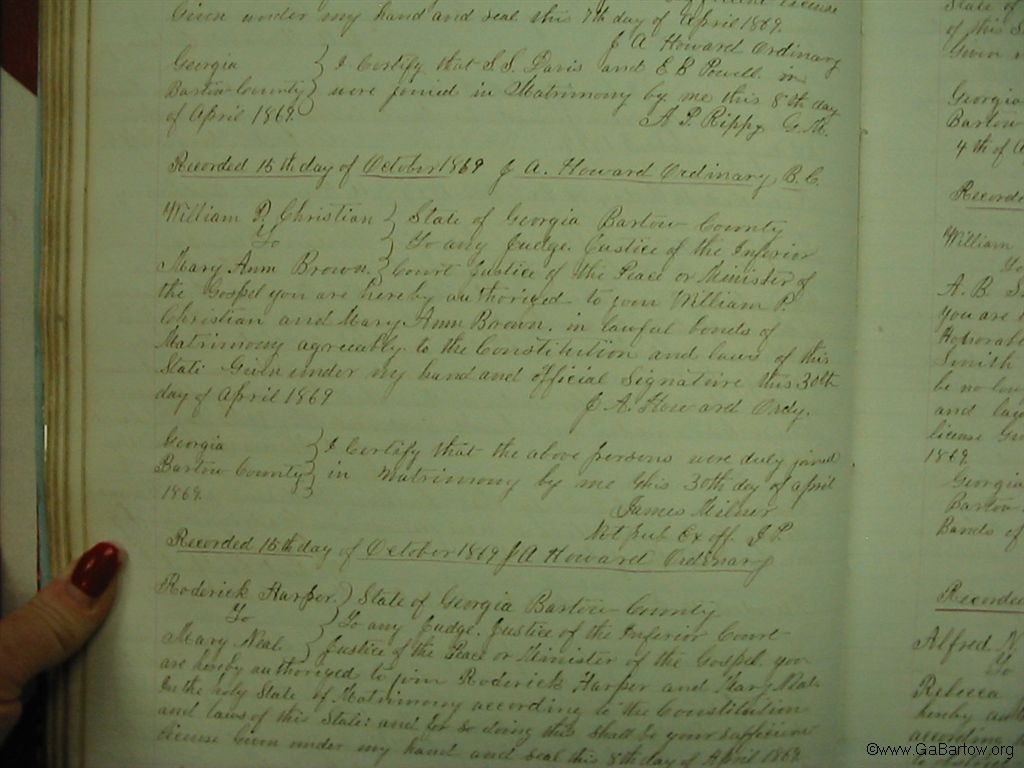 Given under my hand and seal this 7th day of April 1869.
J A Howard Ordinary
Georgia } I Certify that S. S. Davis and E B Powell
Bartow County } were joined in Matrimony by me this 8th day
of April 1869. A. P. Rippy
Recorded 15th day of October 1869 J A. Howard Ordinary B. C.
William P. Christian } State of Georgia Bartow County
To } To any Judge. Justice of the Inferior
Mary Ann Brown. } Court Justice of the Peace or Minister of
the Gospel you are hereby authorized to join William P.
Christian and Mary Ann Brown. in lawful bonds of
Matrimony agreeably to the Constitution and laws of this
State Given under my hand and official Signature this 30th
day of April 1869 J A. Howard Ordy.
Georgia } I Certify that the above persons were duly joined
Bartow County } in Matrimony by me this 30th day of April
1869. James Milner
Not Pub Ex off. J. P.
Recorded 15th day of October 1869 J A Howard Ordinary
Roderick Harper. } State of Georgia Bartow County
To } To any Judge. Justice of the Inferior Court
Mary Neal. } Justice of the Peace or Minister of the Gospel. you
are hereby authorized to join Roderick Harper and Mary Neal
In the holy State of Matrimony according to the Constitution
and laws of this State: and for so doing this Shall be your sufficient
license Given under my hand and seal this 8th day of April 1869.
State of
of this
Given
Georgia
Bartow
4th of
Recorded
William
To
A. B.
you are
Honorable
Smith
be no
and
license
1869.
Georgia
Bartow
Bands of
Recorded
Alfred N.
To
Rebecca
hereby
according
©www.GaBartow.org